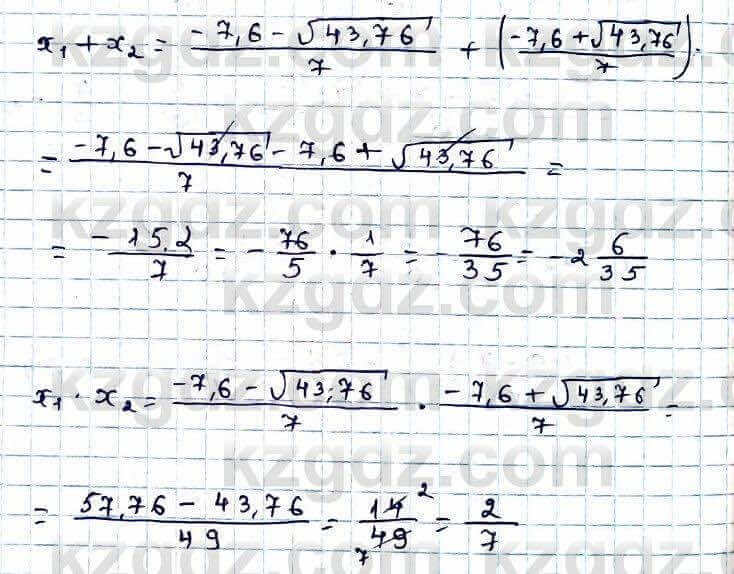 x₁ + x₂ = (-7,6 - √43,76)/7 + ((-7,6 + √43,76)/7).
= (-7,6 - √43,76 - 7,6 + √43,76)/7 =
= -15.2/7 = - 76/5 · 1/7 = - 76/35 = -2 6/35
x₁ · x₂ = (-7,6 - √43,76)/7 · (-7,6 + √43,76)/7 =
= (57,76 - 43,76)/49 = 14²/₇49 = 2/7
kzgdz.com
kzgdz.com
kzgdz.com
kzgdz.com
kzgdz.com
kzgdz.com